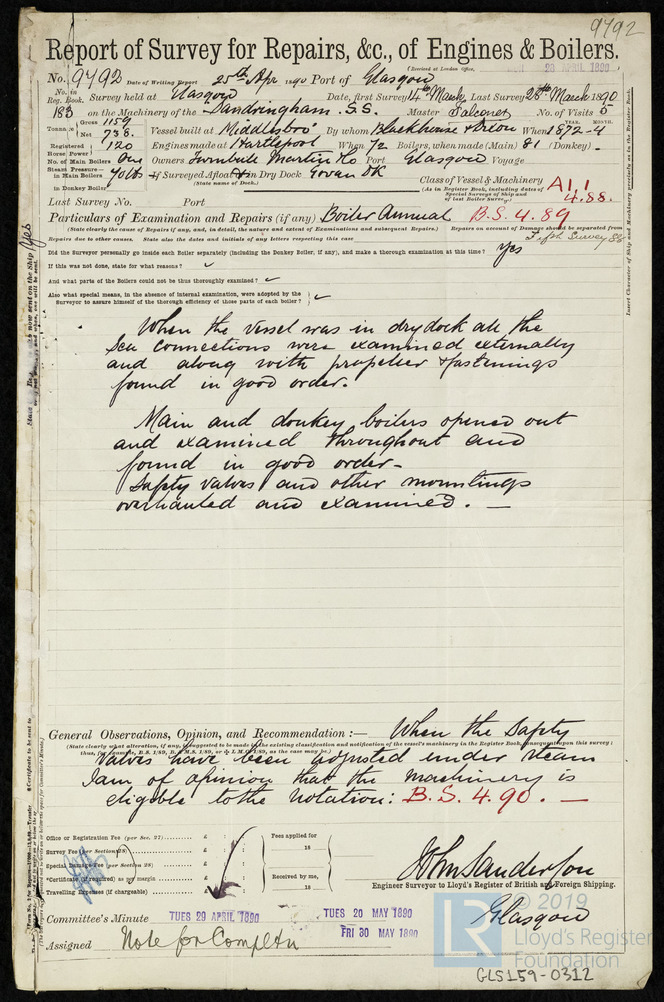 9792
Report of Survey for Repairs, &c., of Engines & Boilers.
(Received at London Office, 29 APRIL 1890
No. 9792 Date of Writing Report 25th Apr 1890 Port of Glasgow
No. in Reg. Book. Survey held at Glasgow Date, first Survey 14th March Last Survey 28th March 1890
183 on the Machinery of the Sandringham S.S. Master Falconer No. of Visits 5
Tonnage Gross 1159
Net 738 Vessel built at Middlesbro' By whom Backhouse & Dixon When 1872-4
YEAR. MONTH.
Registered Horse Power 120 Engines made at Hartlepool When 72 Boilers, when made (Main) 81 (Donkey) -
No. of Main Boilers One Owners Turnbull Martin & Co Port Glasgow Voyage
Steam Pressure in Main Boilers 70lbs If Surveyed Afloat or in Dry Dock Govan DK
(State name of Dock.)
in Donkey Boiler
Class of Vessel & Machinery A1 1
(As in Register Book, including dates of Special Surveys of Ship and of last Boiler Survey.) 4.88.
Last Survey No. Port
Particulars of Examination and Repairs (if any) Boiler Annual B.S. 4.89
(State clearly the cause of Repairs if any, and, in detail, the nature and extent of Examinations and subsequent Repairs.) Repairs on account of Damage should be separated from
Repairs due to other causes. State also the dates and initials of any letters respecting this case
Did the Surveyor personally go inside each Boiler separately (including the Donkey Boiler, if any), and make a thorough examination at this time? Yes
If this was not done, state for what reasons? ✓
And what parts of the Boilers could not be thus thoroughly examined? ✓
Also what special means, in the absence of internal examination, were adopted by the
Surveyor to assure himself of the thorough efficiency of those parts of each boiler? ✓
When the vessel was in drydock all the
sea connections were examined externally
and along with propeller & fastenings
found in good order.
Main and donkey boilers opened out
and examined throughout and
found in good order -
Safety valves and other mountings
overhauled and examined. —
General Observations, Opinion, and Recommendation :— When the Safety
(State clearly what alteration, if any, is suggested to be made in the existing classification and notification of the vessel's machinery in the Register Book, consequent upon this survey;
thus, for example, B.S. 1/89, B. & M.S. 1/89, or & L.M.C. 1/89, as the case may be.)
Valves have been adjusted under steam
I am of opinion that the Machinery is
eligible to the Notation: B.S. 4.90. —
Office or Registration Fee (per Sec. 27) £ : :
Survey Fee (per Section 28) £ : :
Special Damage Fee (per Section 28) £ : :
*Certificate (if required) as per margin £ : :
Travelling Expenses (if chargeable) £ : :
Fees applied for
18
Received by me,
18
John Sanderson
Engineer Surveyor to Lloyd's Register of British and Foreign Shipping.
Glasgow
Committee's Minute TUES 29 APRIL 1890 TUES 20 MAY 1890
FRI 30 MAY 1890
Assigned Note for Compltn
© 2019
LR Lloyd's Register
Foundation
GLS159-0312
Insert Character of Ship and Machinery precisely as in the Register Book.